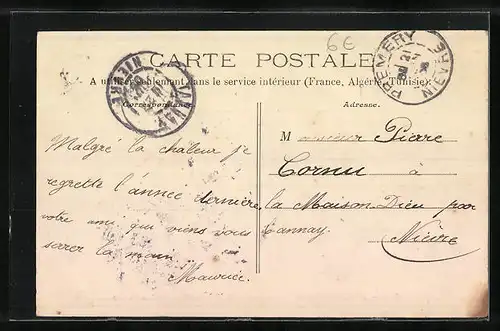 6€
CARTE POSTALE
A utiliser seulement dans le service intérieur (France, Algérie, Tunisie).
Correspondance
Adresse.
PREMERY
NIÈVRE
TANNAY
NIÈVRE
Malgré la chaleur je
regrette l'année dernière,
votre ami qui viens vous
serer la main
Maurice.
Monsieur Pierre
Cornu à
la Maison Dieu par
Tannay.
Nièvre